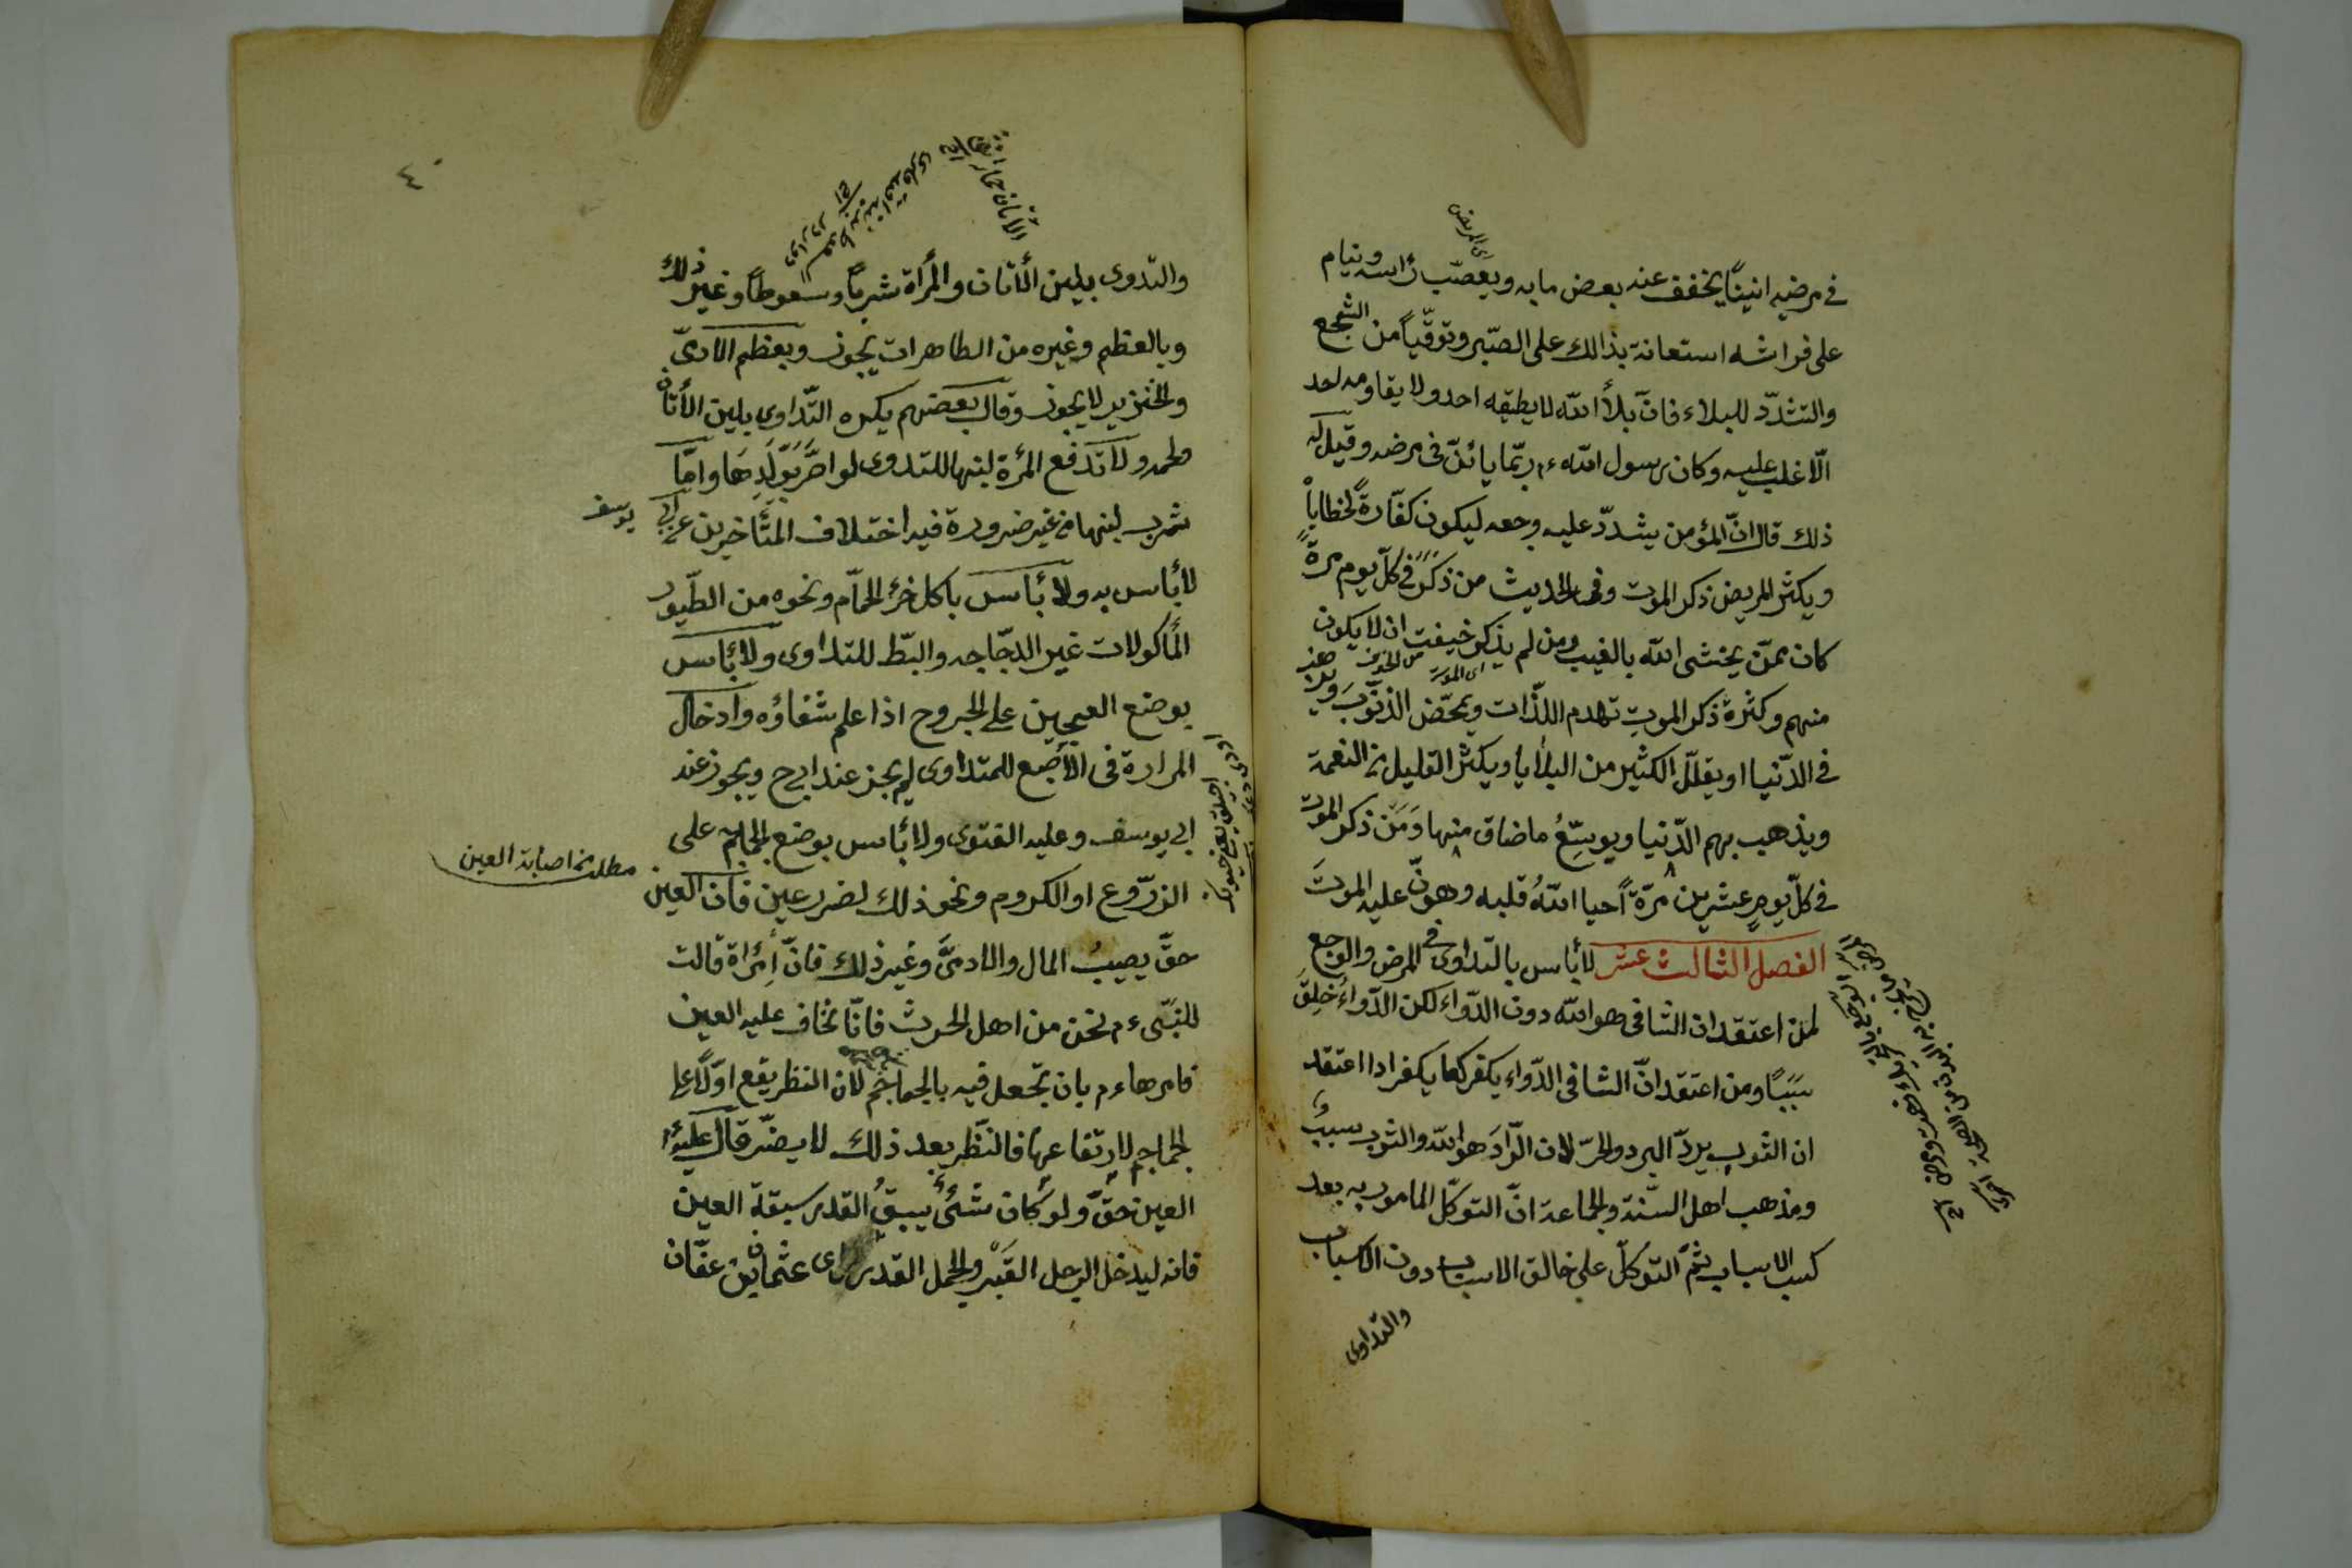 فى مرضه انينًا يخفف عنه بعض ما به ويعصّب رأسه وينام
على فراشه استعانة بذالك على الصّبر وتوقّياً من التشجع
والتشدّد للبلاء فانّ بلأ الله لا يطيقه احد ولا يقاومه احد
الّا غلب عليه وكان رسول الله ءم ربّما يأنّ فى مرضه وقيل له
ذلك قال انّ المؤمن يشدّد عليه وجعه ليكون كفّارةً لخطاياً
ويكثر المريض ذكر الموت وفى الحديث من ذكر فى كلّ يوم مرةً
كان ممّن يخشى الله بالغيب ومن لم يذكر خيفت ان لا يكون
منهم وكثرة ذكر الموت تهدم اللذّات وتمحّض الذنّوب ويزهد
فى الدّنيا او يقلّل الكثير من البلايا ويكثر القليل من النعمة
ويذهب بهم الدّنيا ويوسّعُ ما ضاق منها وَمَن ذكر الموت
فى كلّ يومٍ عشرين مرّةً احيا اللهُ قلبه وهوّن عليه الموتَ
الفصل الثالث عشر لا بأس بالتداوى فى المرض والوجع
لمن اعتقد ان الشافى هو الله دون الدّواء لكن الدّواءُ خلِقَ
سَبَبًا ومن اعتقد انّ الشافى الدّواء يكفر كما يكفر اذا اعتقد
ان الثوب يردّ البرد والحرّ لان الرّادَ هو الله والثوب سببٌ
ومذهب اهل السّنة والجماعة انّ التوكّل المامور به بعد
كسب الاسباب ثمّ التوكلّ على خالق الاسباب دون الاسباب
والتّداوى
٤٠
والتدوى بلبن الأتان والمرأة شرباً وسعوطاً وغير ذلك
وبالعظم وغيره من الطاهرات يجوز وبعظم الادمىّ
والخنزير لا يجوز وقال بعضهم يكره التّداوى بلبن الأتان
ولحمه ولا تدفع المرئة لبنها للتدوى لو اضرّ بوَلَدِهَا وامّا
شرب لبنها من غير ضرورة فيه اختلاف المتأخرين عن ابى يوسف
لا بأس به ولا بأس باكل خرء الحمّام ونحوه من الطّيور
المأكولات غير الدجّاجه والبطّ للتداوى ولا بأس
بوضع العجين على الجروح اذا علم شفاؤه وادخال
المرارة فى الأصبع للمتداوى لم يجز عند ابى ح ويجوز عند
ابى يوسف وعليه الفتوى ولا بأس بوضع الجماجم على
الزرّوع او الكروم ونحو ذلك لضرر عين فان العين
مطلب اصابة العين
حقّ يصيبُ المال والادمىَّ وغير ذلك فانّ إمرأة قالت
للنبّى ءم نحن من اهل الحرث فانّا نخاف عليه العين
فامرها ءم بان تجعل فيه بالجماجم لان النظر يقع اوّلًا على
الجماجم لارتفاعها فالنّظر بعد ذلك لا يضرّ قال عليه
العين حقٌّ ولو كان شئٌ يسبقُ القدر سبقة العين
فانه ليدخل الرجل القَبْر والجمل القدر راى عثمان بن عفّان